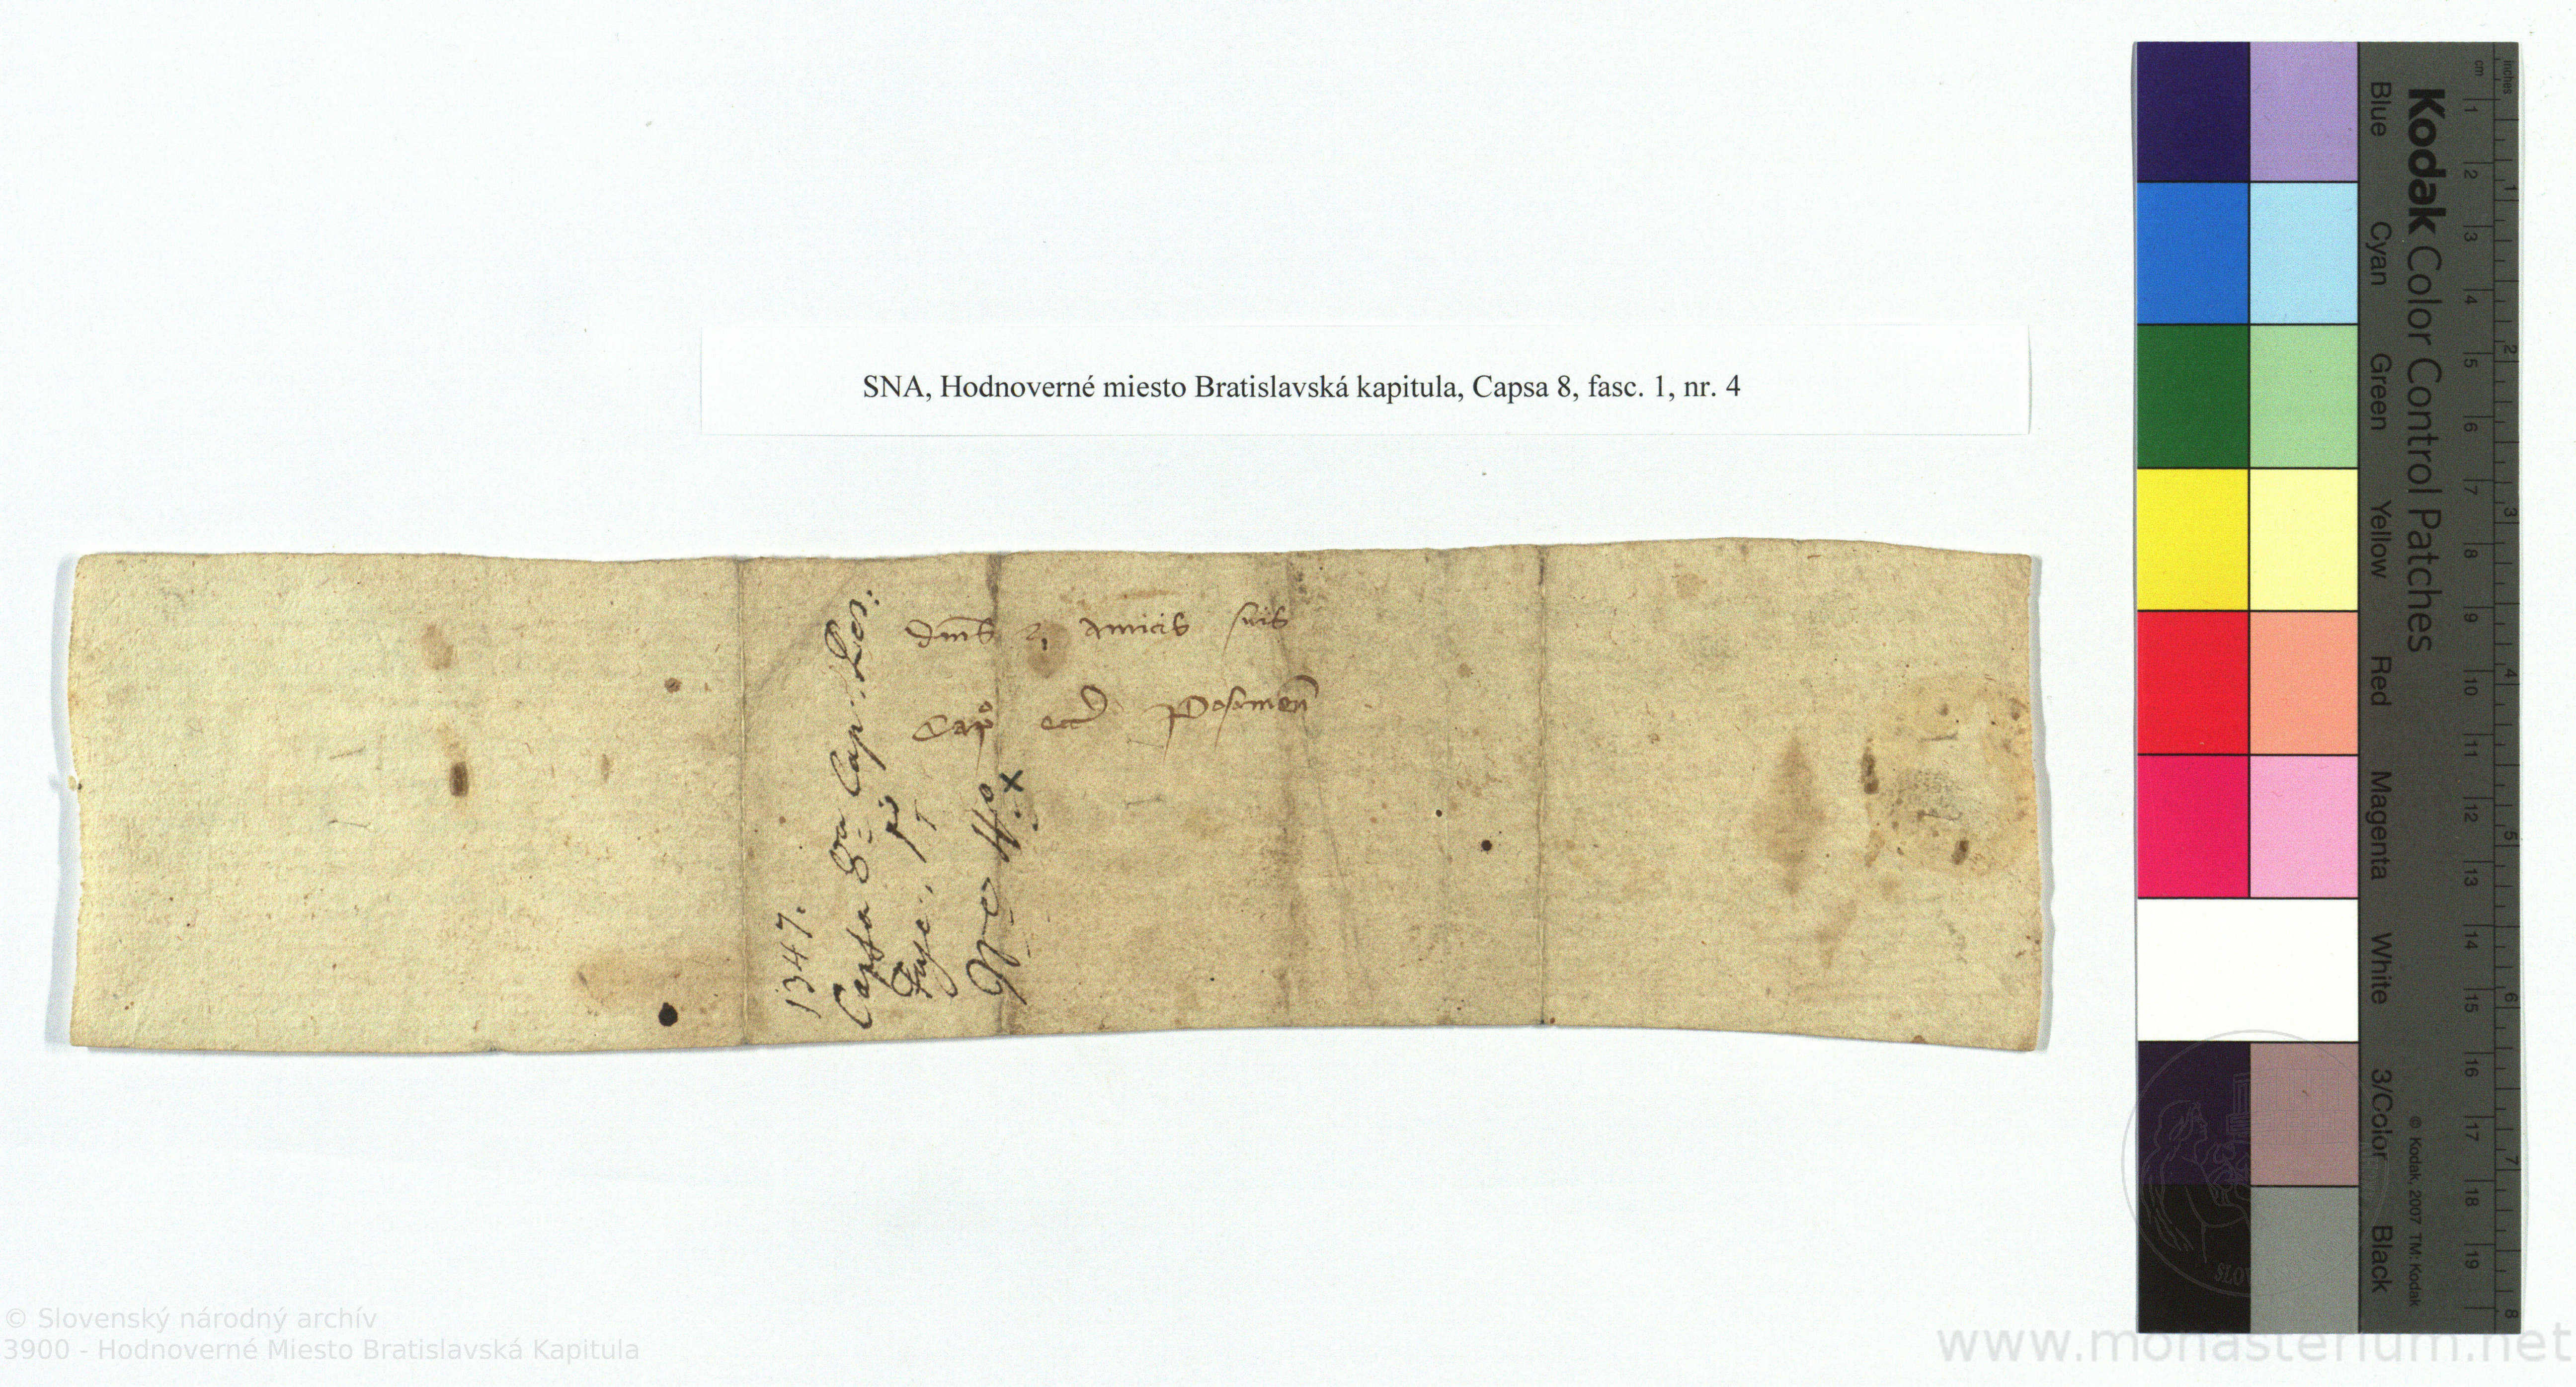 SNA, Hodnoverné miesto Bratislavská kapitula, Capsa 8, fasc. 1, nr. 4
dm̄s et amicis suis
Capᵒ eccᵉ Posonien̄
1347.
Capsa 8va Cap:
Fasc. 1
Nro 4to x
Kodak Color Control Patches
Blue Cyan Green Yellow Red Magenta White 3/Color Black
© Kodak, 2007 TM: Kodak
cm 1 2 3 4 5 6 7 8 9 10 11 12 13 14 15 16 17 18 19
inches 1 2 3 4 5 6 7 8
SLOV
© Slovenský národný archív
3900 - Hodnoverné Miesto Bratislavská Kapitula
www.monasterium.net